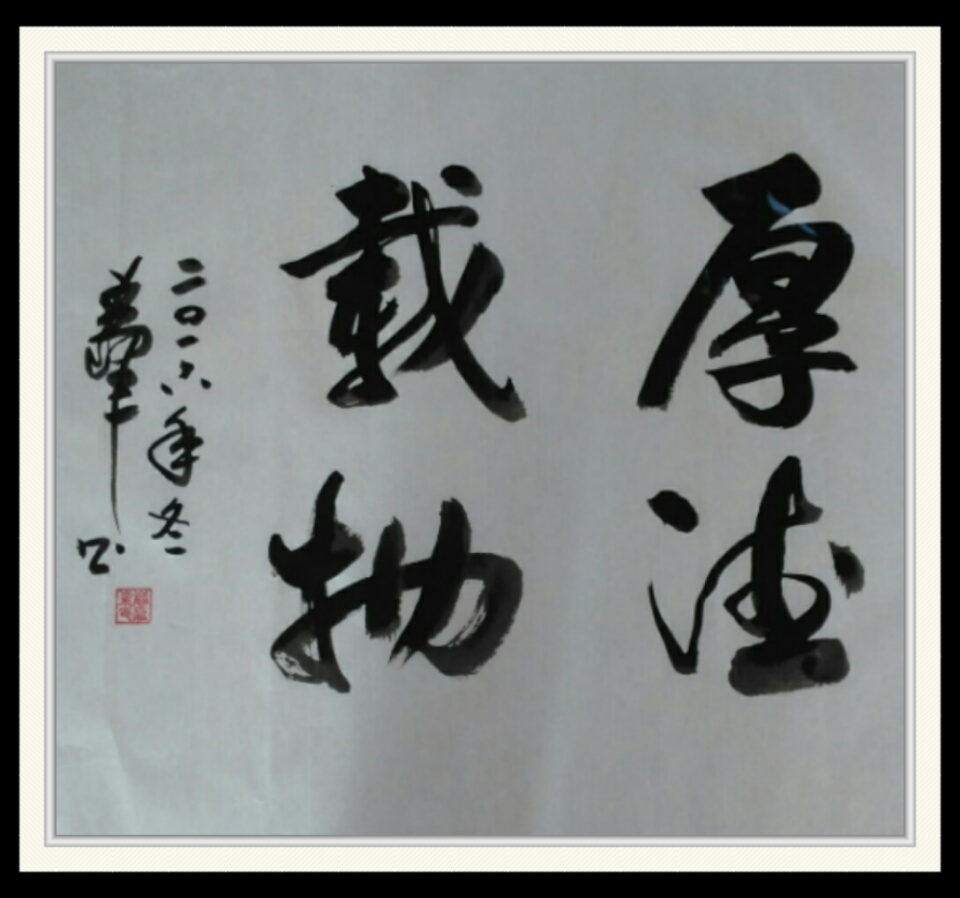 厚德
载物
二〇一六年冬
书